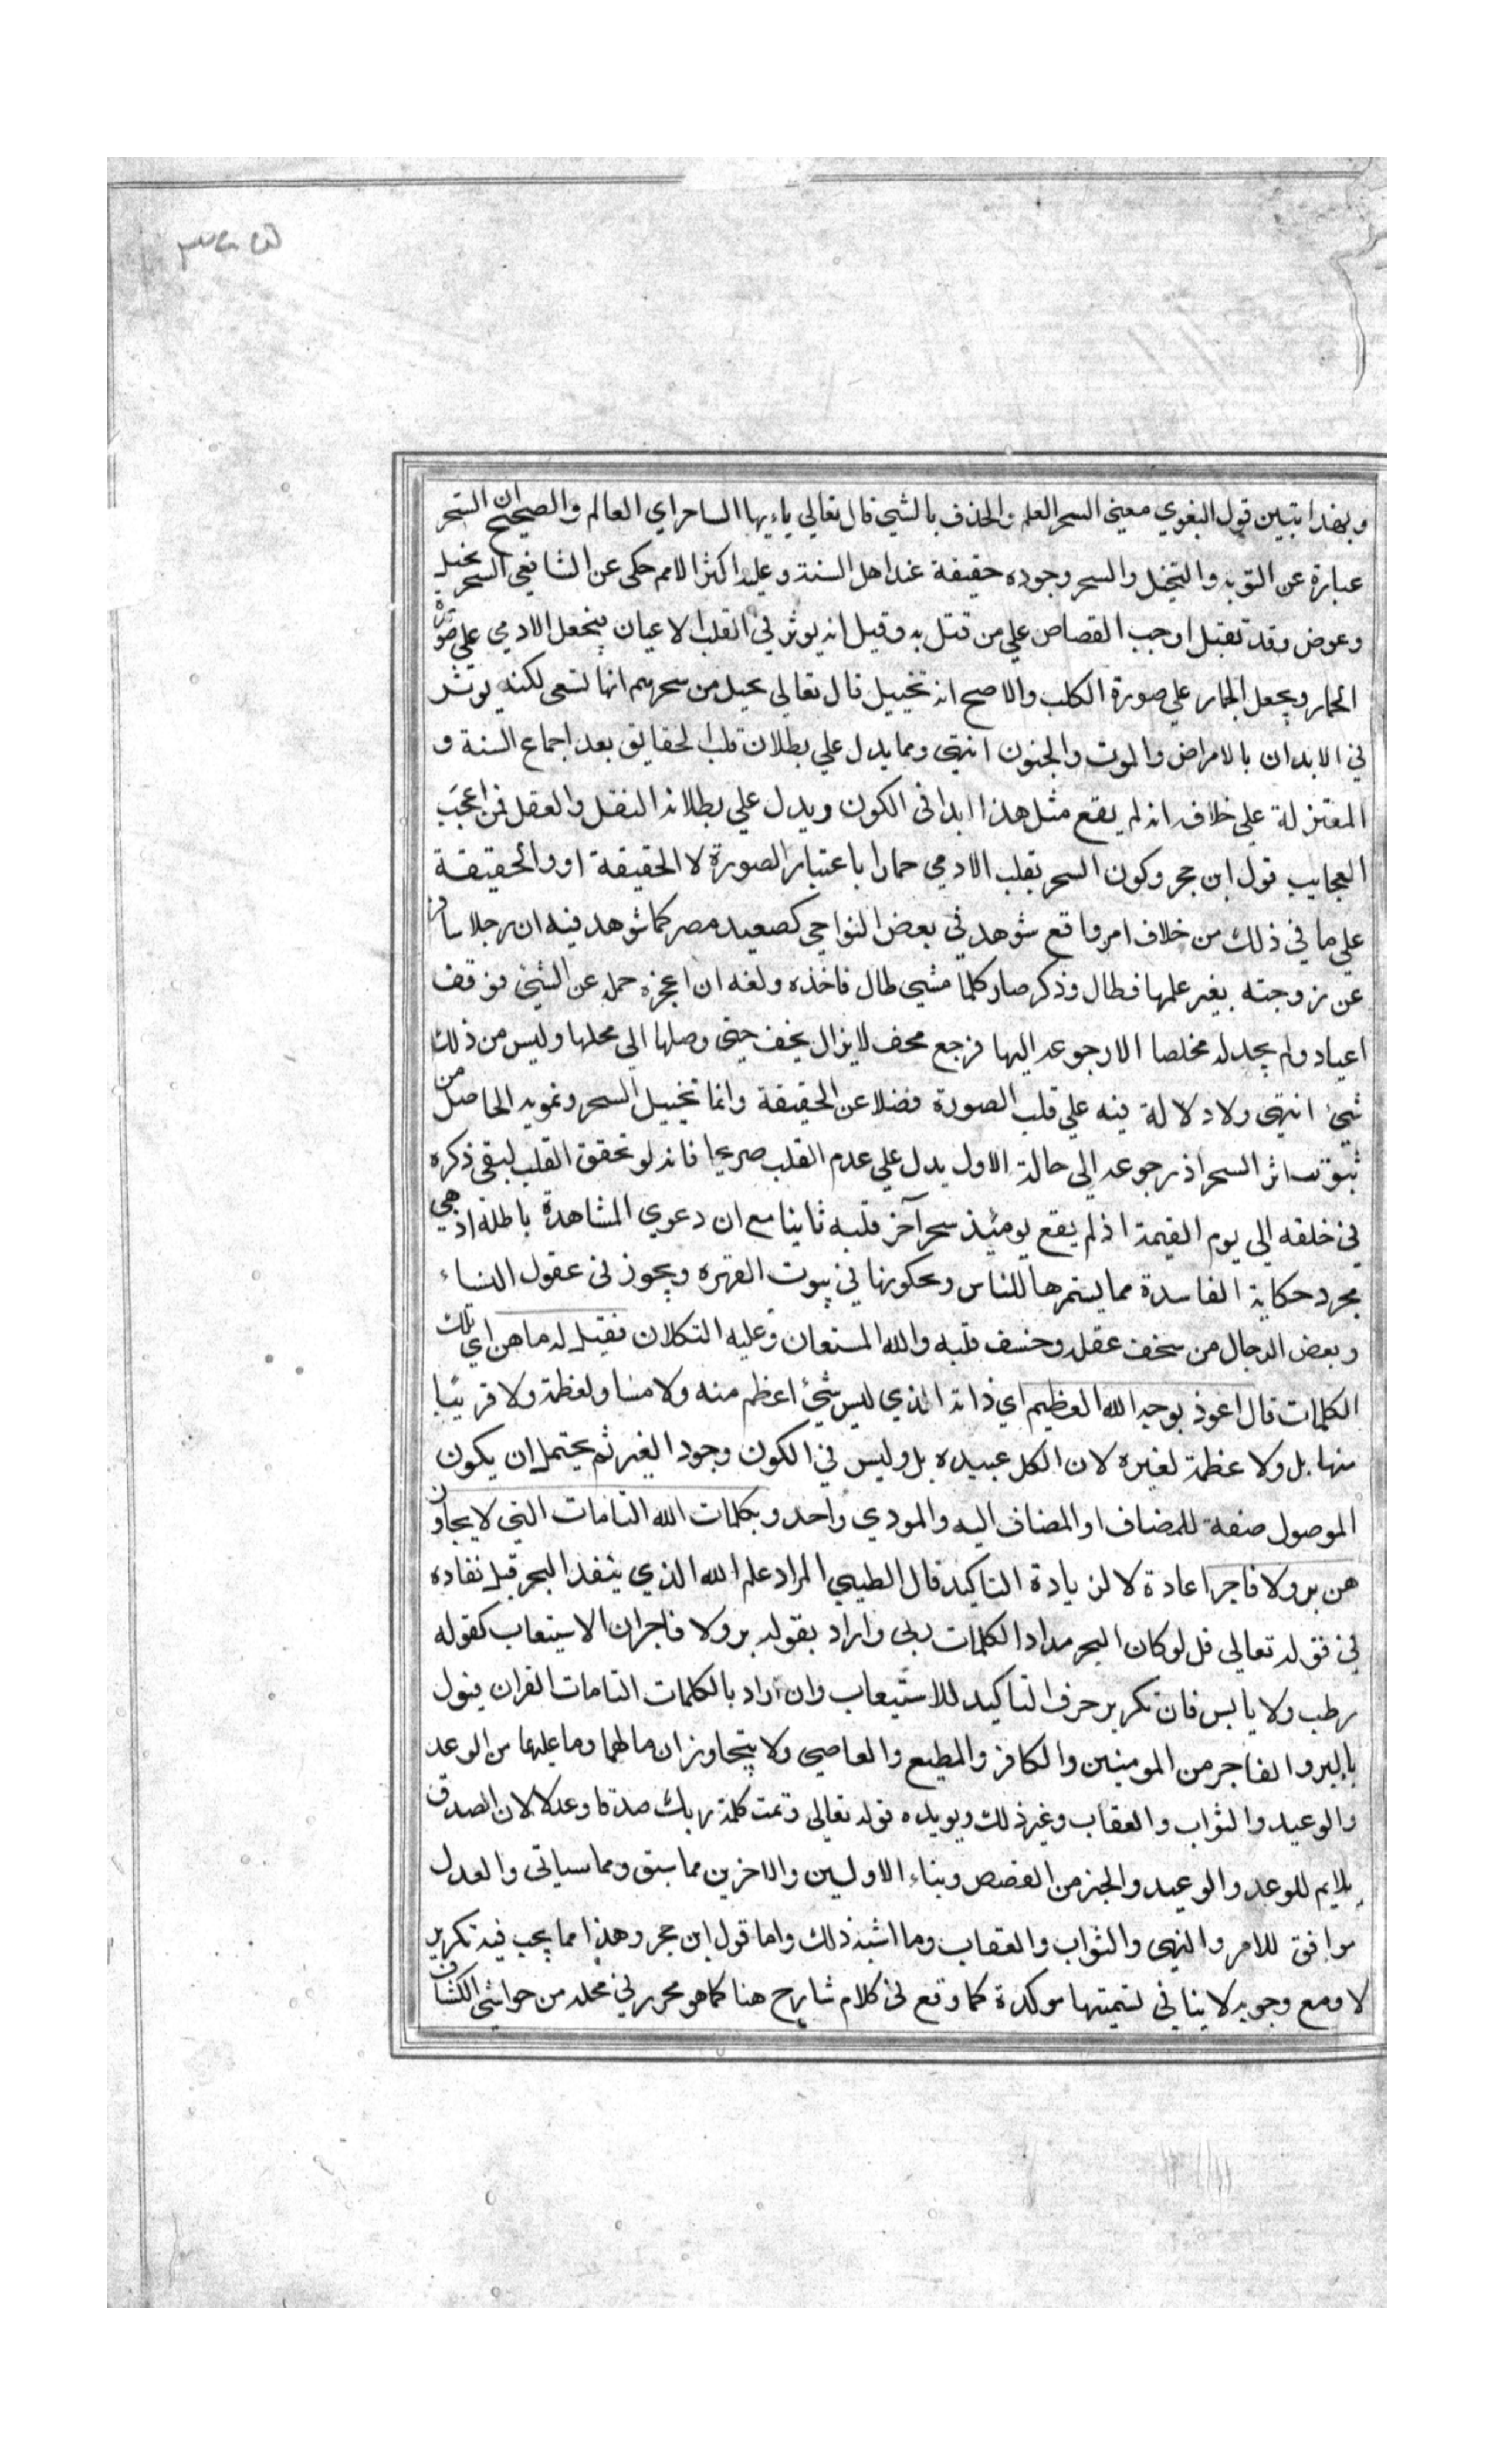 وبهذا يتبين قول البغوي معنى السحر العلم والحذف بالشيء قال تعالى ياءيها الساحر اي العالم والصحيح ان السحر
عبارة عن التويه والتخيل والسحر وجوده حقيقة عند اهل السنة وعليه اكثر الامم حكى عن الشافعي السحر يخيل
وعوض وقد تقبل اوجب القصاص علي من قتل به وقيل انه يوثر في القلب الاعيان فيجعل الادمي علي صورة
الحمار ويجعل الحمار علي صورة الكلب والاصح انه تخييل قال تعالي يخيل من سحرهم انها تسعى لكنه يوثر
في الابدان بالامراض والموت والجنون انتهى ومما يدل علي بطلان قلب الحقايق بعد اجماع السنة و
المعتزلة علي خلافه انه لم يقع مثل هذا ابدا في الكون ويدل علي بطلانه النقل والعقل فمن اعجب
العجايب قول ابن حجر وكون السحر يقلب الادمي حمارا باعتبار الصورة لا الحقيقة او والحقيقة
علي ما في ذلك من خلاف امر واقع شوهد في بعض النواحي كصعيد مصر كما شوهد فيه ان رجلا سافر
عن زوجته بغير علمها فطال وذكر صار كلما مشي طال فاخذه ولفه ان اعجزه حمله عن الشيء فوقف
اعياد ولم يجد له مخلصا الا رجوعه اليها فرجع محف لايزال يخف حتى وصلها الي محلها وليس من ذلك
شيء انتهى ولا دلالة فيه علي قلب الصورة فضلا عن الحقيقة وانما تخييل السحر وتمويه الحاصل من
ثبوت اثر السحر اذ رجوعه الي حالة الاول يدل علي عدم القلب صريحا فانه لو تحقق القلب لبقي ذكره
في خلقه الي يوم القيمة اذ لم يقع يومئذ سحر آخر قلبه ثانيا مع ان دعوي المشاهدة باطلة اذ هي
مجرد حكاية الفاسدة مما يستمرها للناس ويحكونها في بيوت القهوه ويجوز في عقول النساء
وبعض الرجال من سخف عقله وخسف قلبه والله المستعان وعليه التكلان فقيل له ما هن اي تلك
الكلمات قال اعوذ بوجه الله العظيم اي ذاته الذي ليس شيء اعظم منه ولا مساو لعظمة ولا قريبا
منها بل ولا عظمة لغيره لان الكل عبيده بل وليس في الكون وجود الغير ثم يحتمل ان يكون
الموصول صفة للمضاف او المضاف اليه والمودي واحد وبكلمات الله التامات التي لا يجاوز
هن بر ولا فاجر اعادة لا لزيادة التاكيد قال الطيبي المراد علم الله الذي ينفد البحر قبل نفاده
في قوله تعالي قل لو كان البحر مدادا لكلمات ربي واراد بقوله بر ولا فاجران الاستيعاب كقوله
رطب ولا يابس فان تكرير حرف التاكيد للاستيعاب وان اراد بالكلمات التامات القران فيول
بالبر والفاجر من المومنين والكافر والمطيع والعاصي ولا يتجاوزان ما لهما وما عليهما من الوعد
والوعيد والثواب والعقاب وغير ذلك ويويده قوله تعالي وتمت كلمة ربك صدقا وعدلا لان الصدق
يلايم للوعد والوعيد والخبر من القصص ونباء الاولين والاخرين مما سبق ومما سياتي والعدل
موافق للامر والنهي والثواب والعقاب وما اشبه ذلك واما قول ابن حجر وهذا مما يجب فيه تكرير
لا ومع وجوبه لا ينافي تسميتها موكدة كما وقع في كلام شارح هنا كما هو محرر في محله من حواشي الكشاف